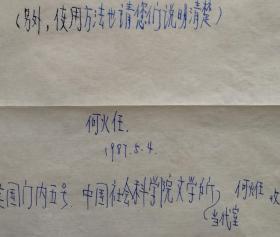 (另外，使用方法也请您们说明清楚)
何火任.
1987.5.4.
国门内五号 中国社会科学院文学所 何火任 收
当代室